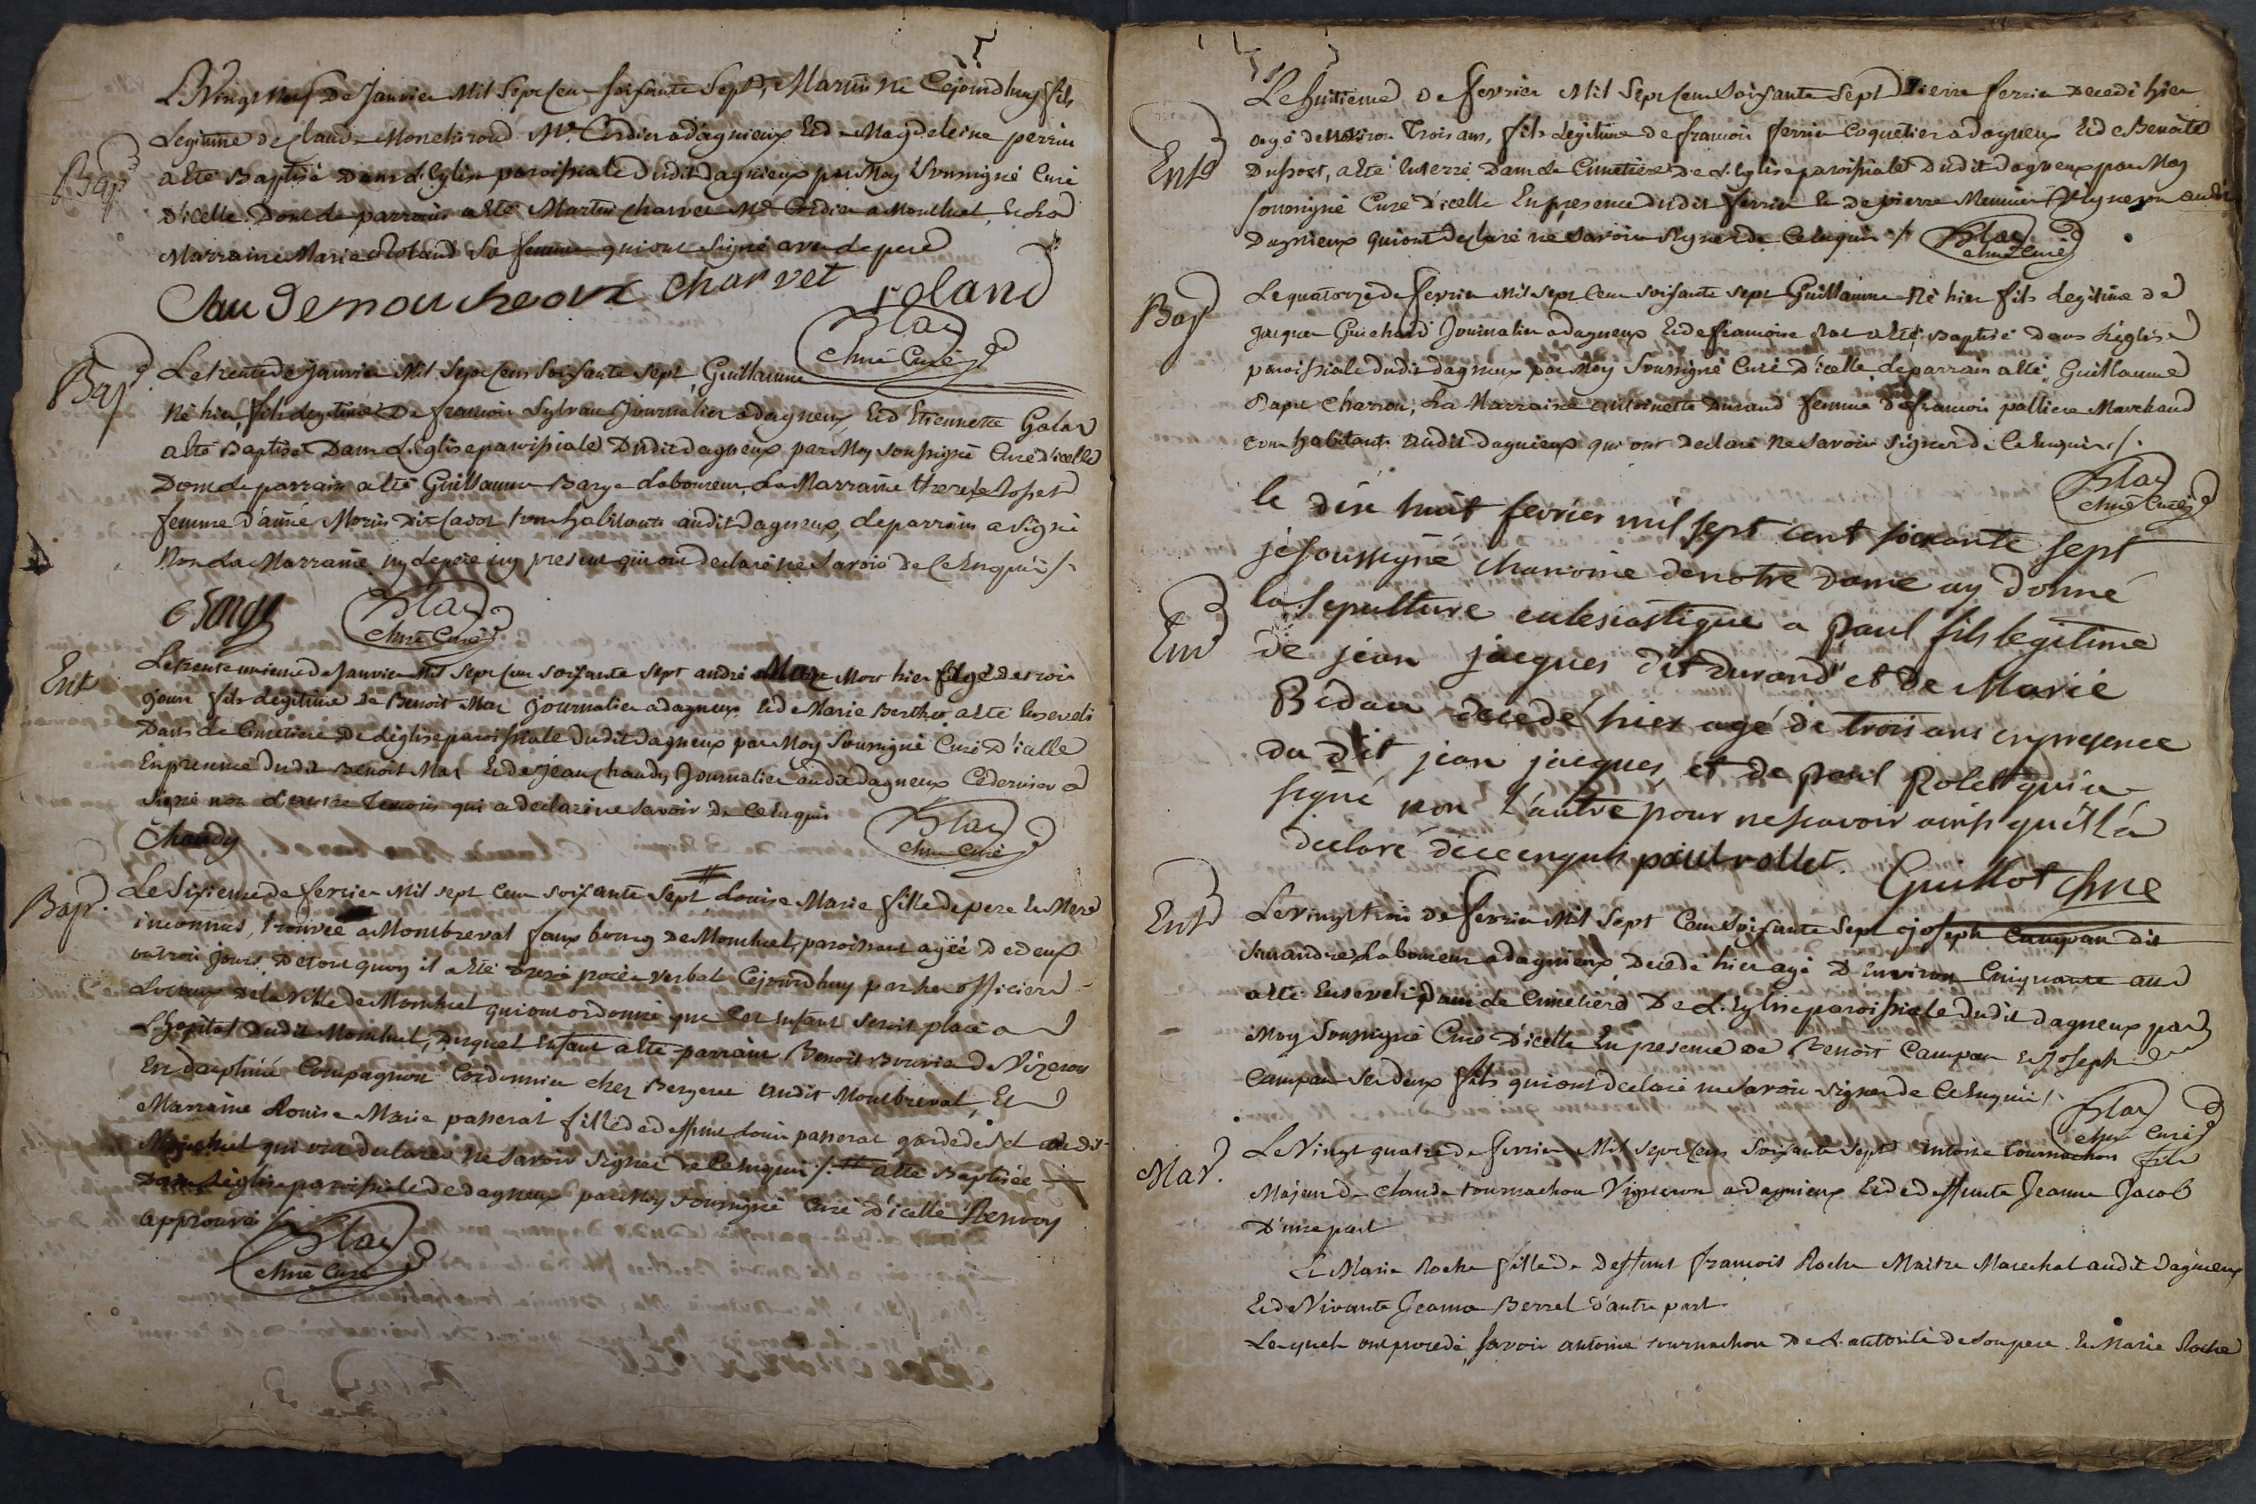 Bap
Le Vingt Neuf De Janvier Mil Sept Cent soisante Sept, Martin Né Cejourdhuy fils
Legitime de Claude Moncheroud Md. Cordier a dagnieux Et de Magdeleine perrin
a Eté Baptisé Dans L'Eglise paroissiale dudit Dagnieux par Moy Soussigné Curé
D'icelle. Dont le parrain a Eté Martin Charvet Md. Cordier a Montluel, Et La
Marraine Marie Roland Sa femme qui ont Signé avec le pere
Charvet
roland
Blay
Chne Curé
Bap
Le trente de Janvier Mil Sept Cens Soisante Sept, Guillaume
Né hier, fils Legitime De françois Sylvan Journalier a dagneux, Et d'Etiennette
a Eté Baptisé Dans L'Eglise paroissiale Dudit Dagneux par Moy Soussigné Curé d'icelle
Dont le parrain a Eté Guillaume Barge Laboureur, La Marraine
femme d'aimé Morin dit Cadot tous habitants audit Dagneux, le parrain a Signé
Non La Marraine ny le pere icy present qui ont declaré ne Savoir de Ce Enquis /.
Blay
Chne Curé
Ent
Le trente unieme de Janvier Mil Sept Cens soisante Sept andré Mas Mort hier agé de trois
jours fils Legitime de Benoit Mas Journalier a dagneux Et de Marie Berthet a Eté Enseveli
Dans Le Cimetiere De L'Eglise paroissiale dudit dagneux par Moy Soussigné Curé D'icelle
En presence dudit Benoit Mas Et de Jean Chaudy Journalier audit dagneux Ce dernier a
Signé non L'autre temoin qui a declaré ne Savoir de Ce Enquis
Blay
Chne Curé
Chaudy
Bap.
Le Sixieme de fevrier Mil sept Cens soisante Sept, Louise Marie fille de pere Et Mere
inconnus, trouvée a Montbreval faux bourg de Montluel, paroissant agée de deux
ou trois jours, De tout quoy il a Eté Dressé procès verbal Cejourdhuy par les officiers
Locaux de la Ville de Montluel qui ont ordonné que Cet Enfant Seroit placé a
L'hopital dudit Montluel, Duquel Enfant a Eté parrain Benoit Bouvier de Vizeron
En dauphiné Compagnon Cordonnier chez Bergeret audit Montbreval, Et
Marraine Louise Marie passerat fille de deffunt Louis passerat garde de Sel audit
Montluel qui ont declarés Ne Savoir Signer de Ce Enquis /. # a Eté Baptisée
Dans L'Eglise paroissiale de dagneux par Moy soussigné Curé d'icelle Renvoy
approuvé /.
Blay
Chne Curé
Ent
Le huitieme De fevrier Mil Sept Cens Soisante Sept Pierre ferrier Decedé hier
agé d'environ Trois ans, fils Legitime de françois ferrier Coquetier a dagneux Et de Benoite
Dupost, a Eté Enterré Dans Le Cimetiere De L'Eglise paroissiale Dudit dagneux par Moy
soussigné Curé D'icelle En presence dudit ferrier Et de pierre Meunier Vigneron audit
Dagnieux qui ont declaré ne Savoir Signer de Ce Enquis /.
Blay
Chne Curé
Bap
Le quatorze de fevrier Mil Sept Cens soisante Sept Guillaume Né hier fils Legitime de
Jacques Guichard Journalier a dagneux Et de françoise Mas a Eté Baptisé Dans L'Eglise
paroissiale dudit dagneux par Moy Soussigné Curé D'icelle, le parrain a Eté Guillaume
Charron, La Marraine antoinette Durand femme de françois palliere Marchand
tous habitants audit dagnieux qui ont declaré Ne Savoir Signer de Ce Enquis /.
Blay
Chne Curé
Ent
le dix huit fevrier mil sept cent soixante sept
je soussigné chanoine de notre dame ay donné
la sepulture eclesiastique a paul fils legitime
de jean jacques dit durand et de Marie
Bidau decedé hier agé de trois ans en presence
du dit jean jacques et de paul Rolet qui a
signé non L'autre pour ne scavoir ainsi qu'il l'a
declaré de ce enquis paul rollet. Guillot chne
Ent
Le vingt trois De fevrier Mil Sept Cens Soisante Sept joseph Campan dit
Laboureur a dagnieux, Decedé hier agé D'Environ Cinquante ans
a Eté Enseveli Dans le Cimetiere De L'Eglise paroissiale dudit dagneux par
Moy Soussigné Curé D'icelle En presence de Benoit Campan Et Joseph
Campan Ses deux fils qui ont declaré ne Savoir Signer de Ce Enquis /.
Blay
Chne Curé
Mar.
Le Vingt quatre de fevrier Mil Sept Cens Soisante Sept antoine tournachon fils
Majeur de Claude tournachon Vigneron a dagnieux Et de deffunte Jeanne Jacob
D'une part
Et Marie Roche fille de Deffunt françois Roche Maitre Marechal audit dagneux
Et de Vivante Jeanne Berret d'autre part
Lesquels ont procedé, savoir antoine tournachon De L'autorité de Son pere Et Marie Roche